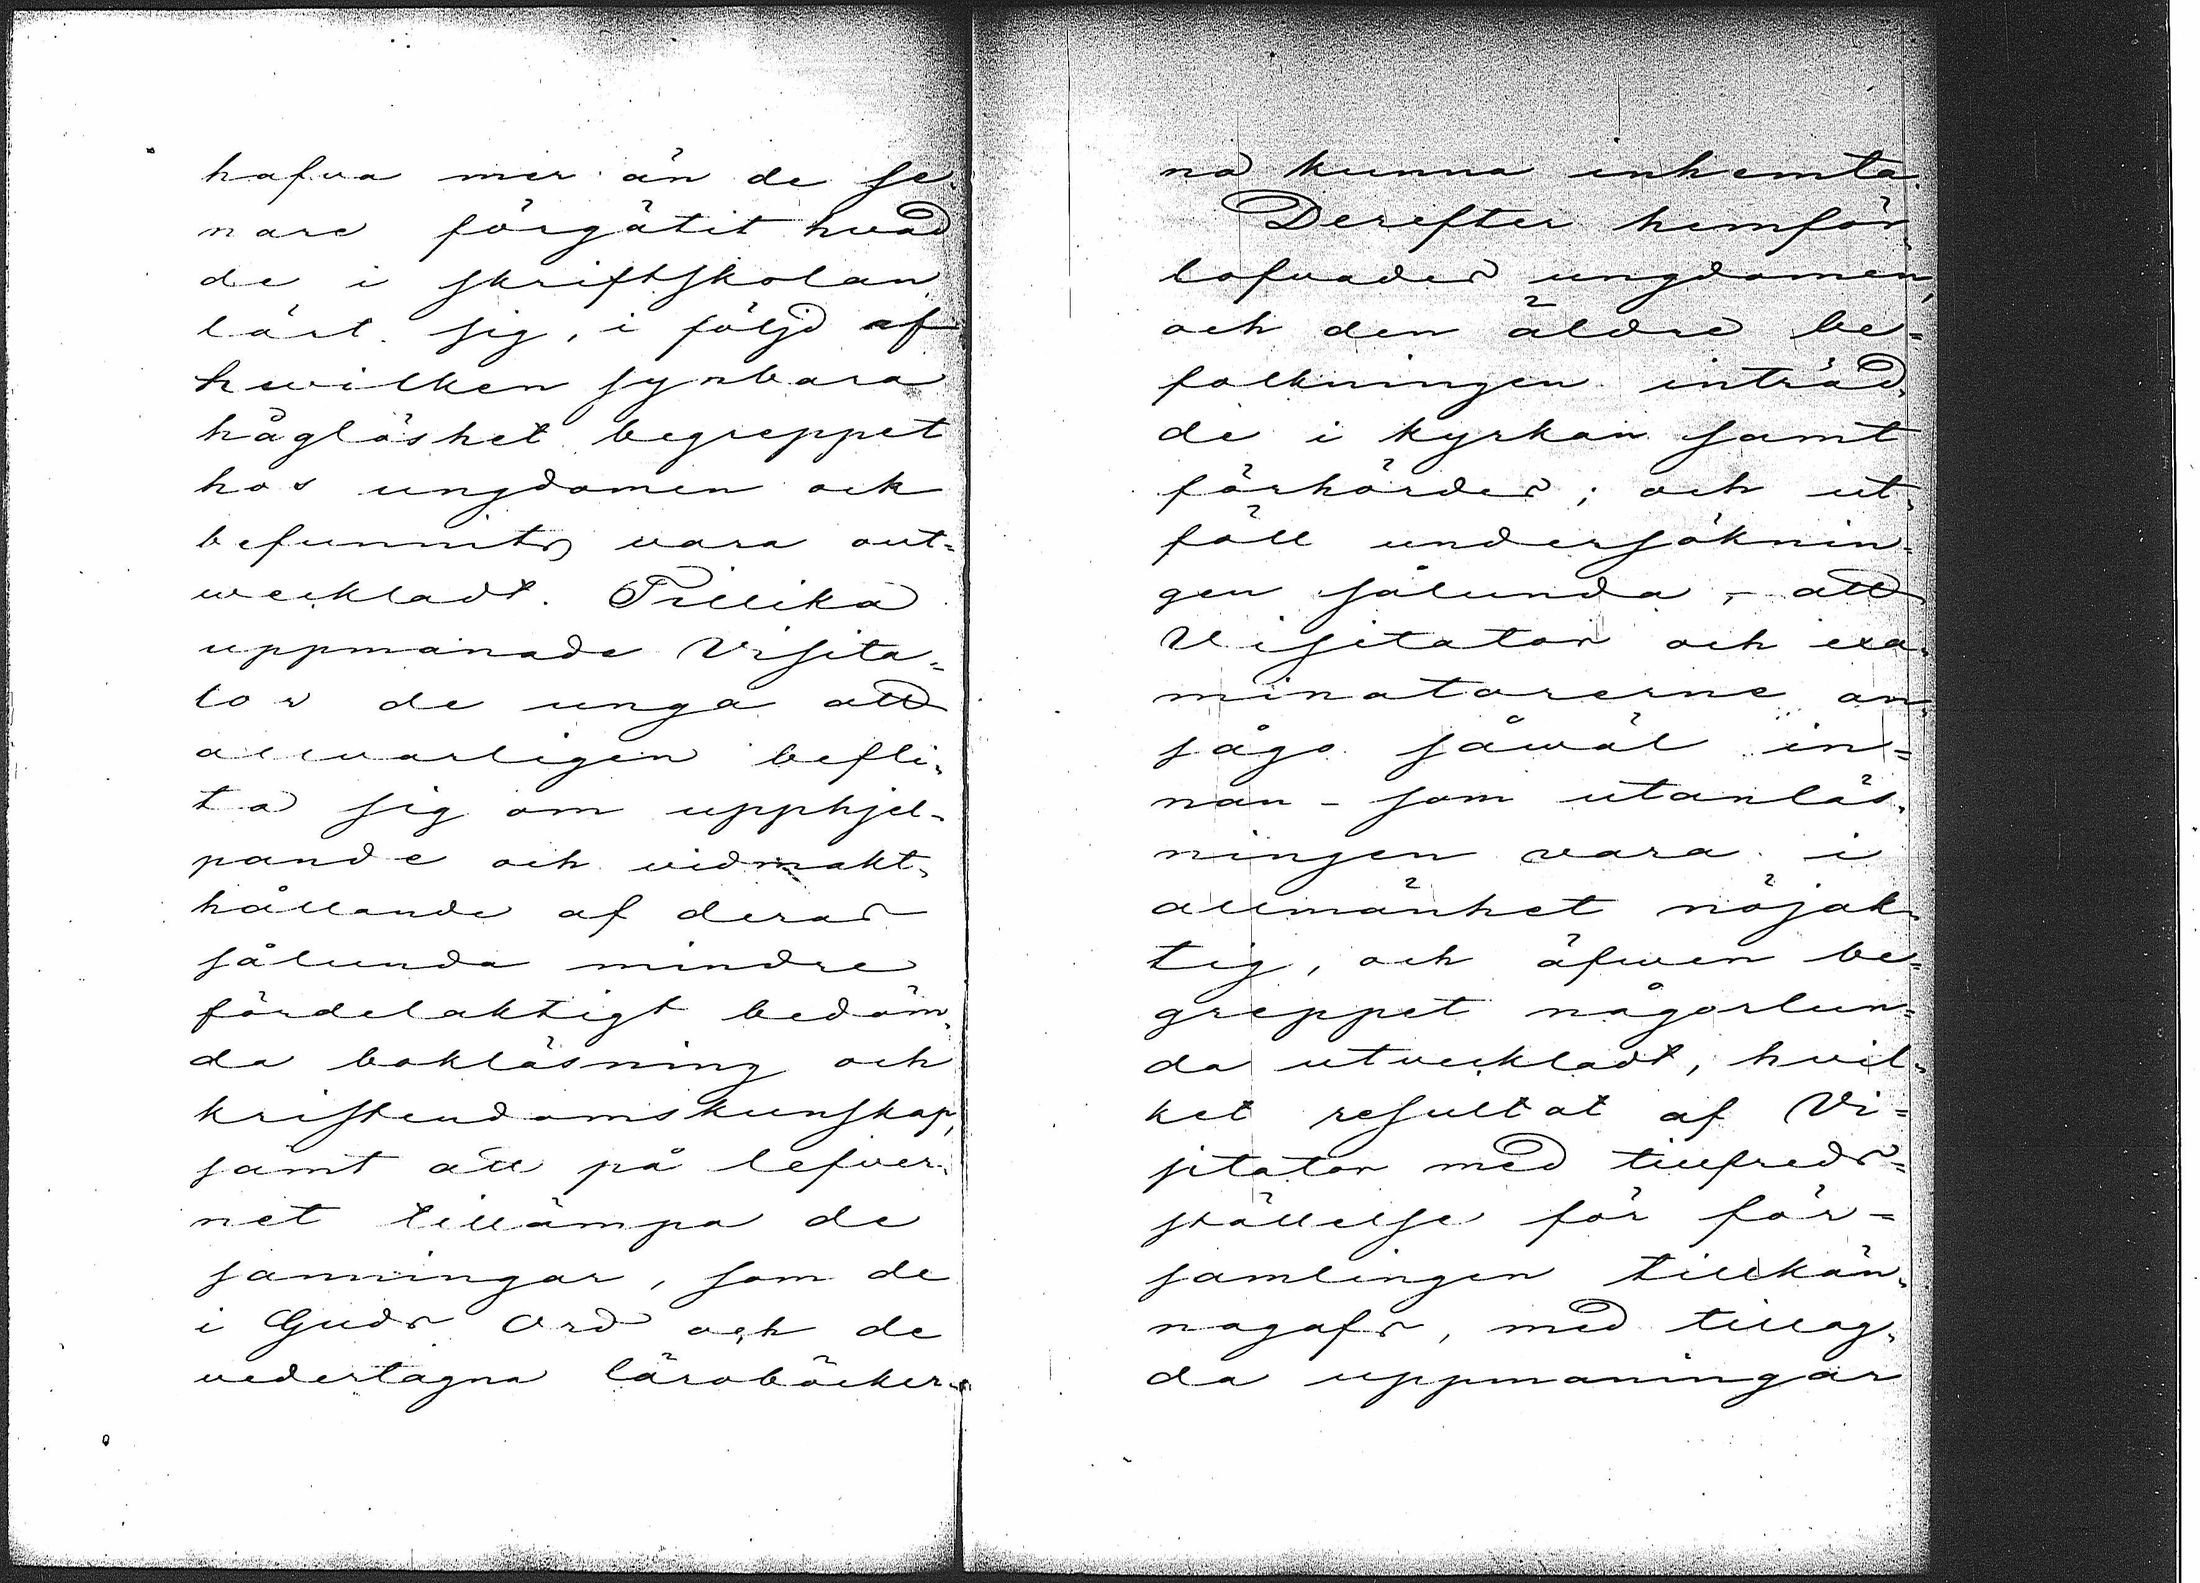 hafva mer än de se-
nare förgätit hvad
de i skriftskolan
lärt sig, i följd af
hwilken synbara
håglöshet begreppet
hos ungdomen ock
befunnits vara out-
weckladt. Tillika
uppmanade Visita-
tor de unga att
allvarligen befli-
ta sig om upphjel-
pande och vidmakt-
hållande af deras
sålunda mindre
fördelaktigt bedöm-
da bokläsning och
kristendomskunskap,
samt att på lefver-
net tillämpa de
sanningar, som de
i Guds Ord och de
vedertagna läroböcker-
na kunna inhemta.
Derefter hemför-
lofvades ungdomen,
och den äldre be-
folkningen inträd-
de i kyrkan samt
förhördes; och ut-
föll undersöknin-
gen sålunda, att
Visitator och exa-
minatorerne an-
sågo såwäl in-
nan- som utanläs-
ningen vara i
allmänhet nöjak-
tig, och äfwen be-
greppet någorlun-
da utveckladt, hvil-
ket resultat af Vi-
sitator med tillfreds-
ställelse för för-
samlingen tillkän-
nagafs, med tillag-
da uppmaningar